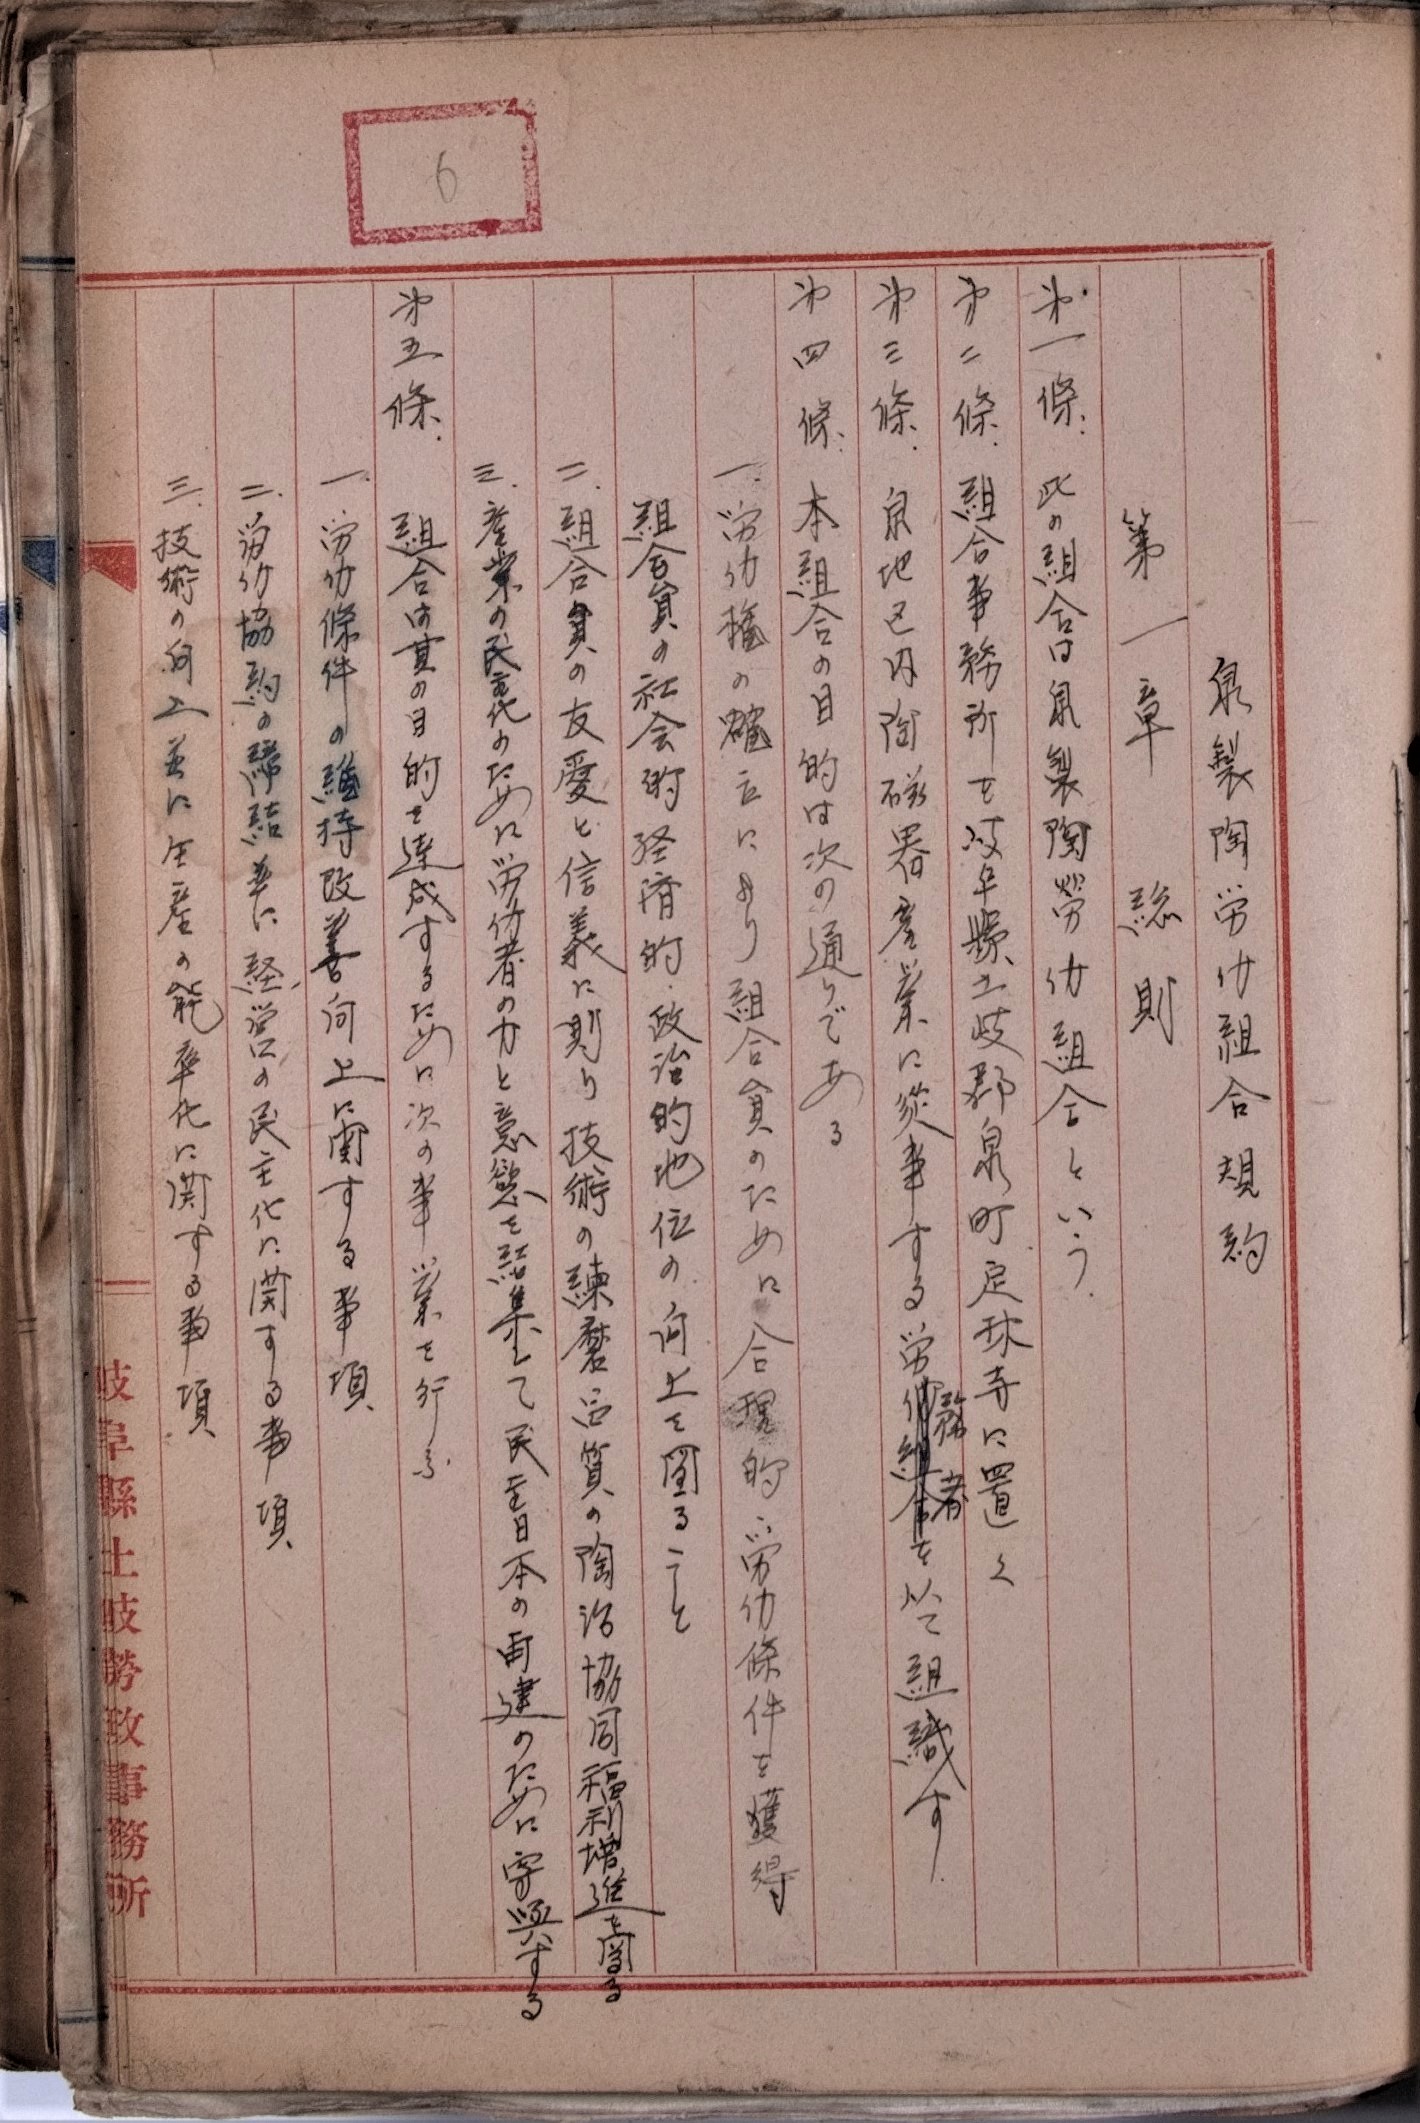 6
泉製陶労仂組合規約
第一章 総則
第一條. 此の組合は泉製陶勞仂組合という.
第二條. 組合事務所を岐阜縣土岐郡泉町定林寺に置く
第三條. 泉地区内陶磁器産業に從事する労務者を以て組織す
第四條. 本組合の目的は次の通りである
一. 労仂権の確立により組合員のために合理的労仂條件を獲得
組合員の社会的経済的.政治的地位の向上を図ること
二. 組合員の友愛と信義に則り技術の練磨品質の陶冶協同福利増進を図る
三. 産業の民主化のために労仂者の力と意慾を結集して民主日本の再建のために寄與する
第五條. 組合は其の目的を達成するために次の事業を行ふ
一. 労仂條件の維持改善向上に関する事項
二. 労仂協約の締結並に経営の民主化に関する事項
三. 技術の向上並に生産の能率化に関する事項
岐阜縣土岐勞政事務所